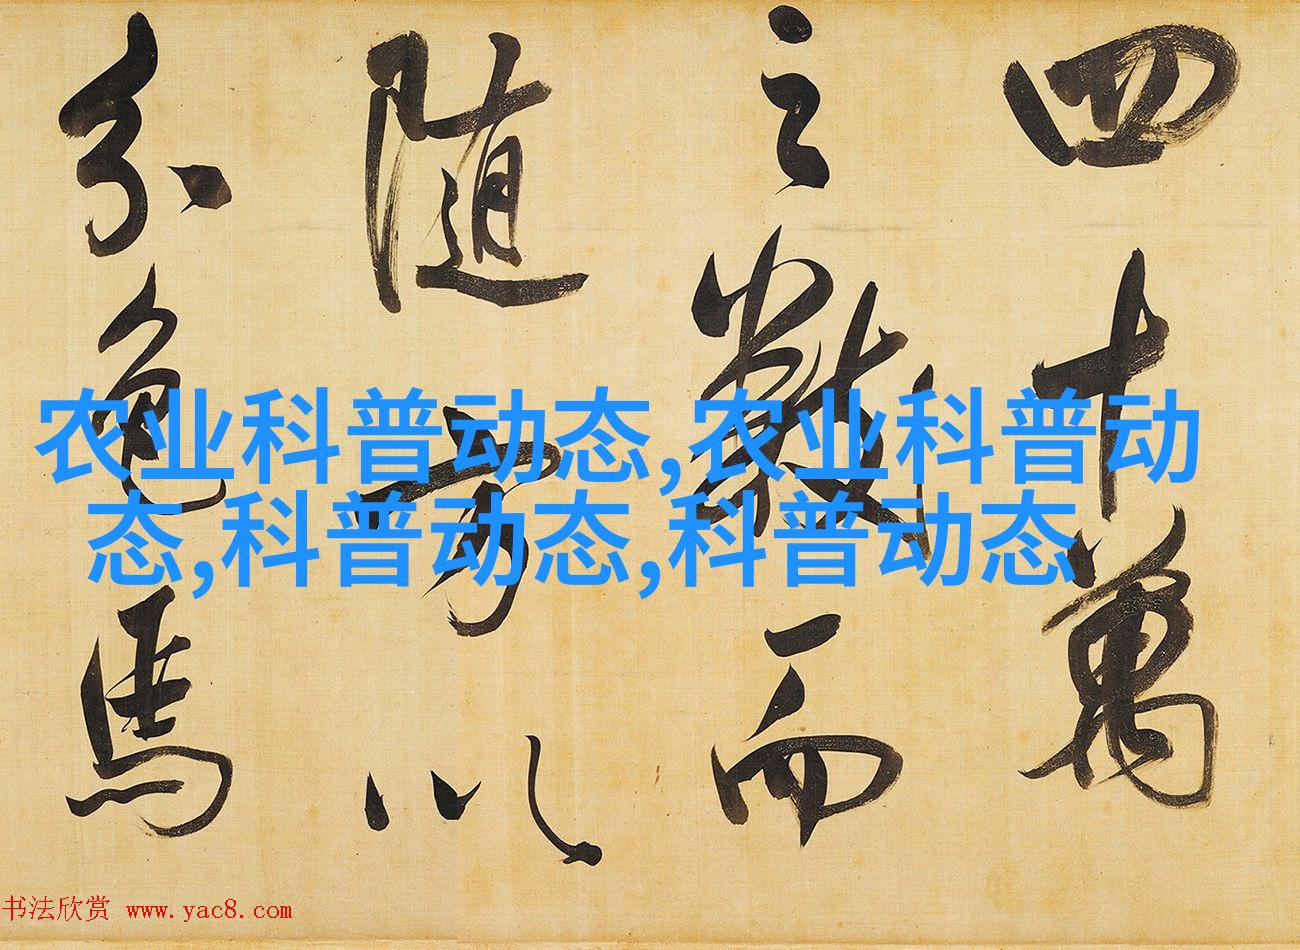 四十萬
之數而
隨方以
分色焉
农业科普动态,农业科普动
态,科普动态,科普动态
书法欣赏 www.yac8.com